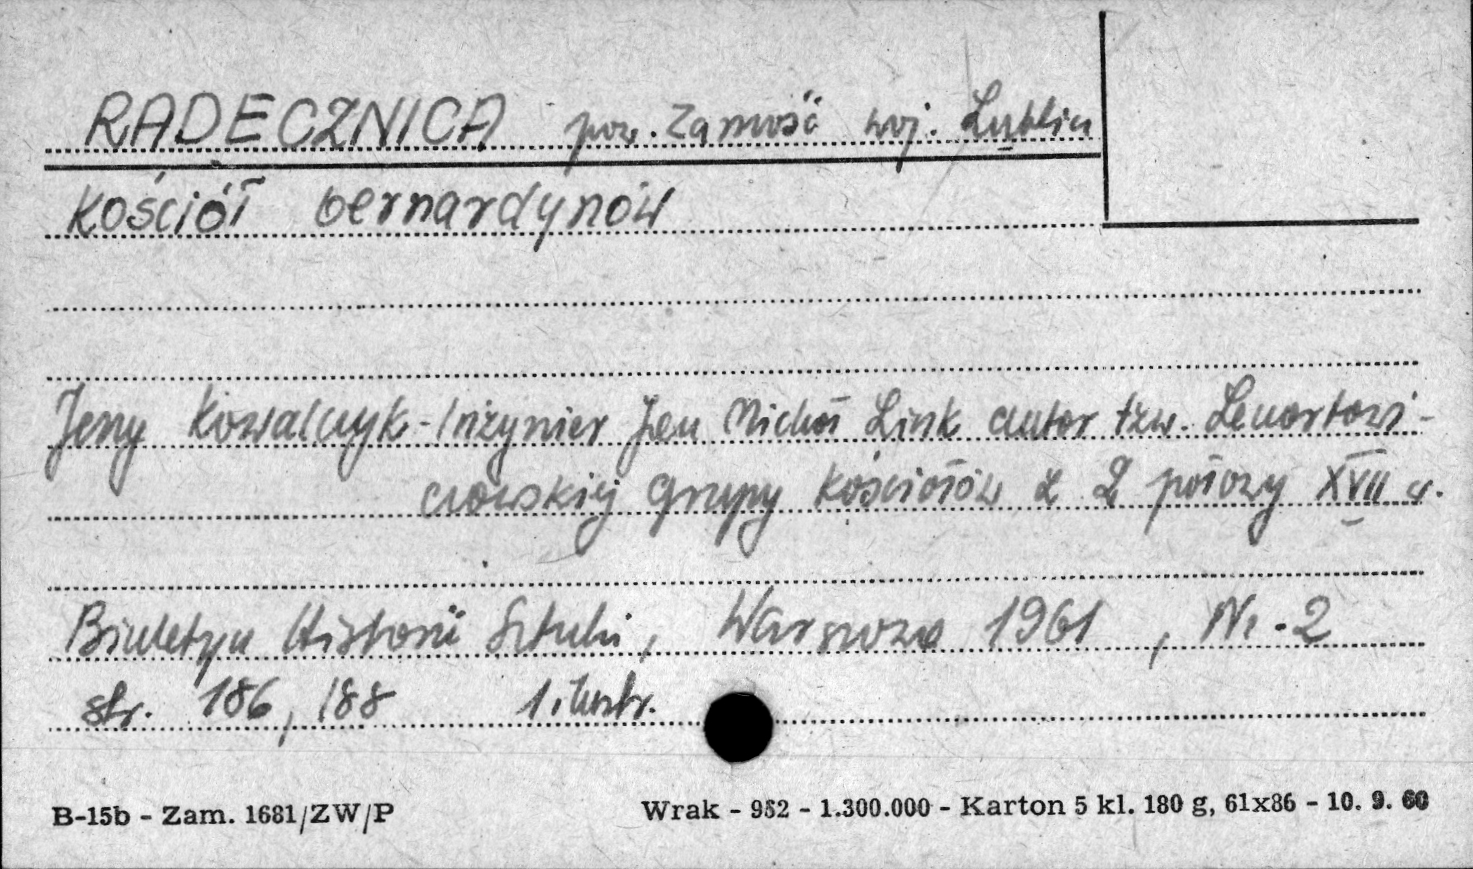 RADECZNICA pow. Zamość woj. Lublin
Kościół bernardynów
Jerzy Kowalczyk - Inżynier Jan Michał Link autor tzw. Lenartowi-
czowskiej grupy kościołów z 2 połowy XVII w.
Biuletyn Historii Sztuki, Warszawa 1961, Nr. 2
str. 186, 188 1 ilustr.
B-15b - Zam. 1681/ZW/P Wrak - 952 - 1.300.000 - Karton 5 kl. 180 g, 61x86 - 10. 9. 60